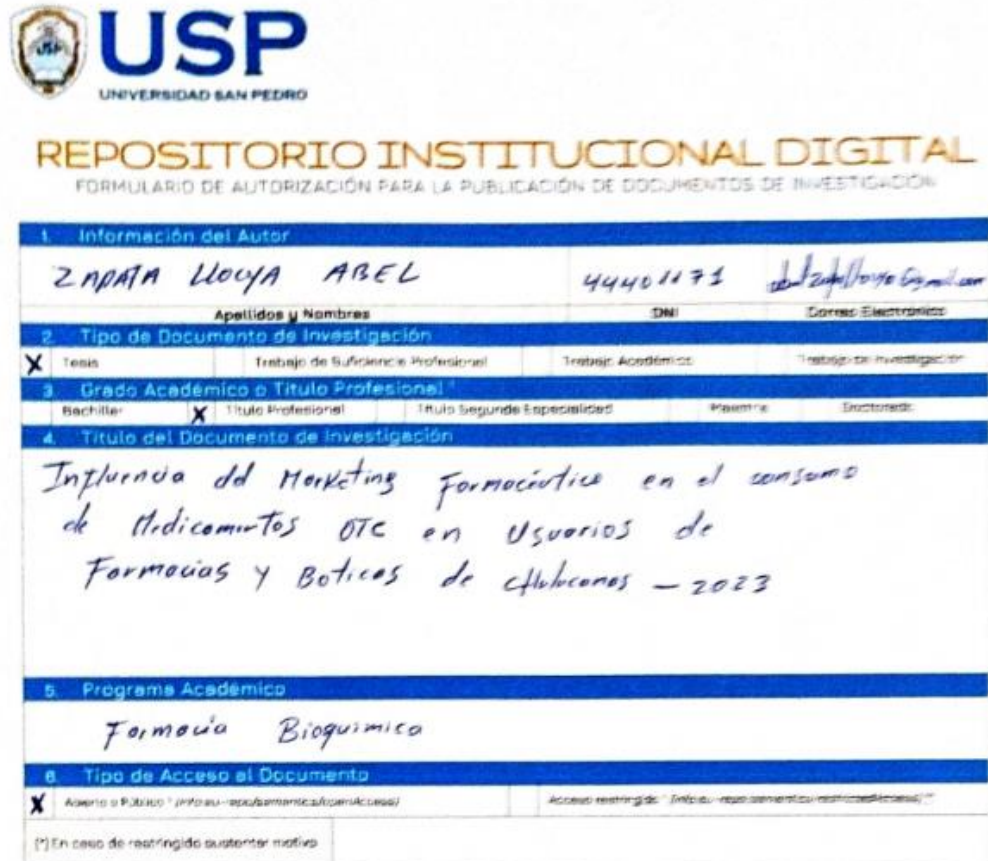 USP
USP
UNIVERSIDAD SAN PEDRO
REPOSITORIO INSTITUCIONAL DIGITAL
FORMULARIO DE AUTORIZACIÓN PARA LA PUBLICACIÓN DE DOCUMENTOS DE INVESTIGACIÓN
1. Información del Autor
ZAPATA LLOCYA ABEL 44401171
Apellidos y Nombres DNI Correo Electrónico
2. Tipo de Documento de Investigación
X Tesis Trabajo de Suficiencia Profesional Trabajo Académico Trabajo de Investigación
3. Grado Académico o Título Profesional *
Bachiller X Título Profesional Título Segunda Especialidad Maestría Doctorado
4. Título del Documento de Investigación
Influencia del Marketing Farmacéutico en el consumo
de Medicamentos OTC en Usuarios de
Farmacias y Boticas de - 2023
5. Programa Académico
Farmacia Bioquimica
6. Tipo de Acceso al Documento
X Abierto o Público * (info:eu-repo/semantics/openAccess) Acceso restringido * (info:eu-repo/semantics/restrictedAccess) (*)
(*) En caso de restringido sustentar motivo